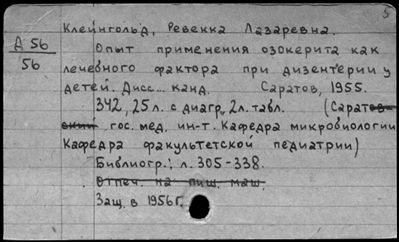 5
Клейнгольд, Ревекка Лазаревна.
Д 56
56
Опыт применения озокерита как
лечебного фактора при дизентерии у
детей. Дисс... канд. Саратов, 1955.
342, 25 л. с диагр, 2 л. табл. (Саратов-
ский гос. мед. ин-т. Кафедра микробиологии
Кафедра факультетской педиатрии)
Библиогр.: л. 305-338.
Отпеч. на пиш. маш.
Защ. в 1956 г.